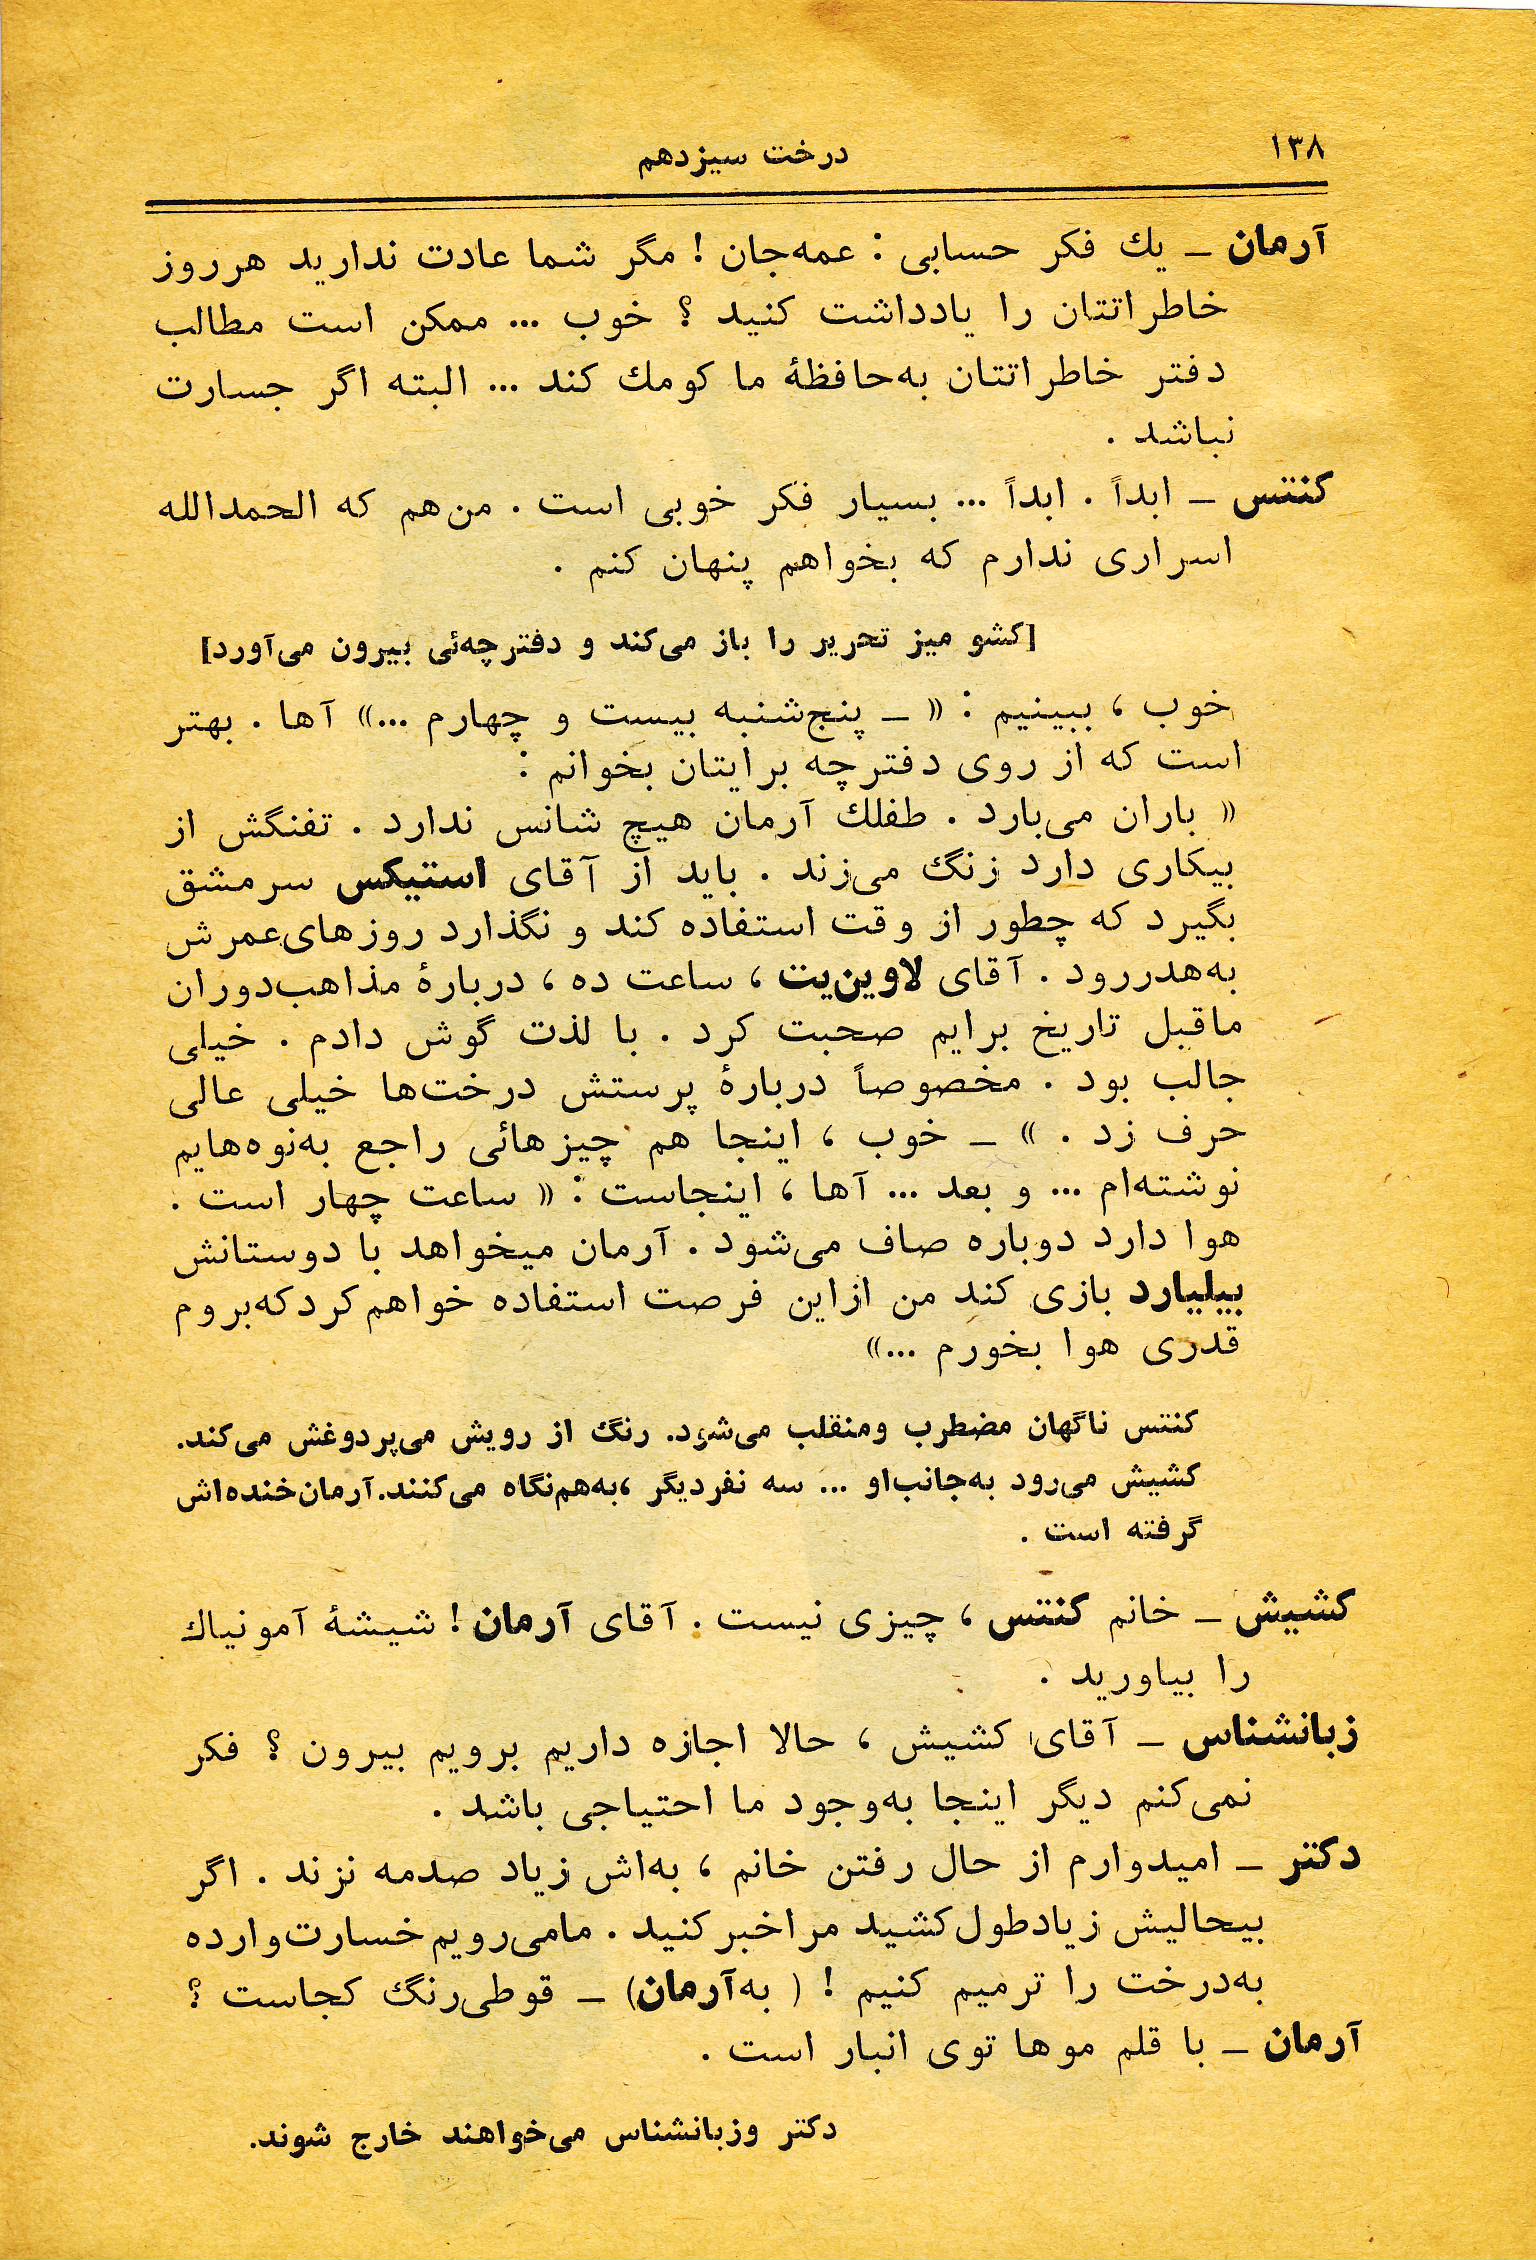 ۱۳۸
درخت سیزدهم
آرمان ــ یك فکر حسابی : عمه‌جان ! مگر شما عادت ندارید هرروز
خاطراتتان را یادداشت کنید ؟ خوب ... ممکن است مطالب
دفتر خاطراتتان به‌حافظهٔ ما کومك کند ... البته اگر جسارت
نباشد .
کنتس ــ ابداً . ابداً ... بسیار فکر خوبی است . من‌هم که الحمدالله
اسراری ندارم که بخواهم پنهان کنم .
[کشو میز تحریر را باز می‌کند و دفترچه‌ئی بیرون می‌آورد]
خوب ، ببینیم : « ــ پنج‌شنبه بیست و چهارم ...» آها . بهتر
است که از روی دفترچه برایتان بخوانم :
« باران می‌بارد . طفلك آرمان هیچ شانس ندارد . تفنگش از
بیکاری دارد زنگ می‌زند . باید از آقای استیکس سرمشق
بگیرد که چطور از وقت استفاده کند و نگذارد روزهای‌عمرش
به‌هدررود . آقای لاوین‌یت ، ساعت ده ، دربارهٔ مذاهب‌دوران
ماقبل تاریخ برایم صحبت کرد . با لذت گوش دادم . خیلی
جالب بود . مخصوصاً دربارهٔ پرستش درخت‌ها خیلی عالی
حرف زد . » ــ خوب ، اینجا هم چیزهائی راجع به‌نوه‌هایم
نوشته‌ام ... و بعد ... آها ، اینجاست : « ساعت چهار است .
هوا دارد دوباره صاف می‌شود . آرمان میخواهد با دوستانش
بیلیارد بازی کند من ازاین فرصت استفاده خواهم‌کردکه‌بروم
قدری هوا بخورم ...»
کنتس ناگهان مضطرب ومنقلب می‌شود. رنگ از رویش می‌پردوغش می‌کند.
کشیش می‌رود به‌جانب‌او ... سه نفردیگر ،به‌هم‌نگاه می‌کنند.آرمان‌خنده‌اش
گرفته است .
کشیش ــ خانم کنتس ، چیزی نیست . آقای آرمان ! شیشهٔ آمونیاك
را بیاورید .
زبانشناس ــ آقای کشیش ، حالا اجازه داریم برویم بیرون ؟ فکر
نمی‌کنم دیگر اینجا به‌وجود ما احتیاجی باشد .
دکتر ــ امیدوارم از حال رفتن خانم ، به‌اش زیاد صدمه نزند . اگر
بیحالیش زیادطول‌کشید مراخبرکنید . مامی‌رویم‌خسارت‌وارده
به‌درخت را ترمیم کنیم ! ( به‌آرمان) ــ قوطی‌رنگ کجاست ؟
آرمان ــ با قلم موها توی انبار است .
دکتر وزبانشناس می‌خواهند خارج شوند.